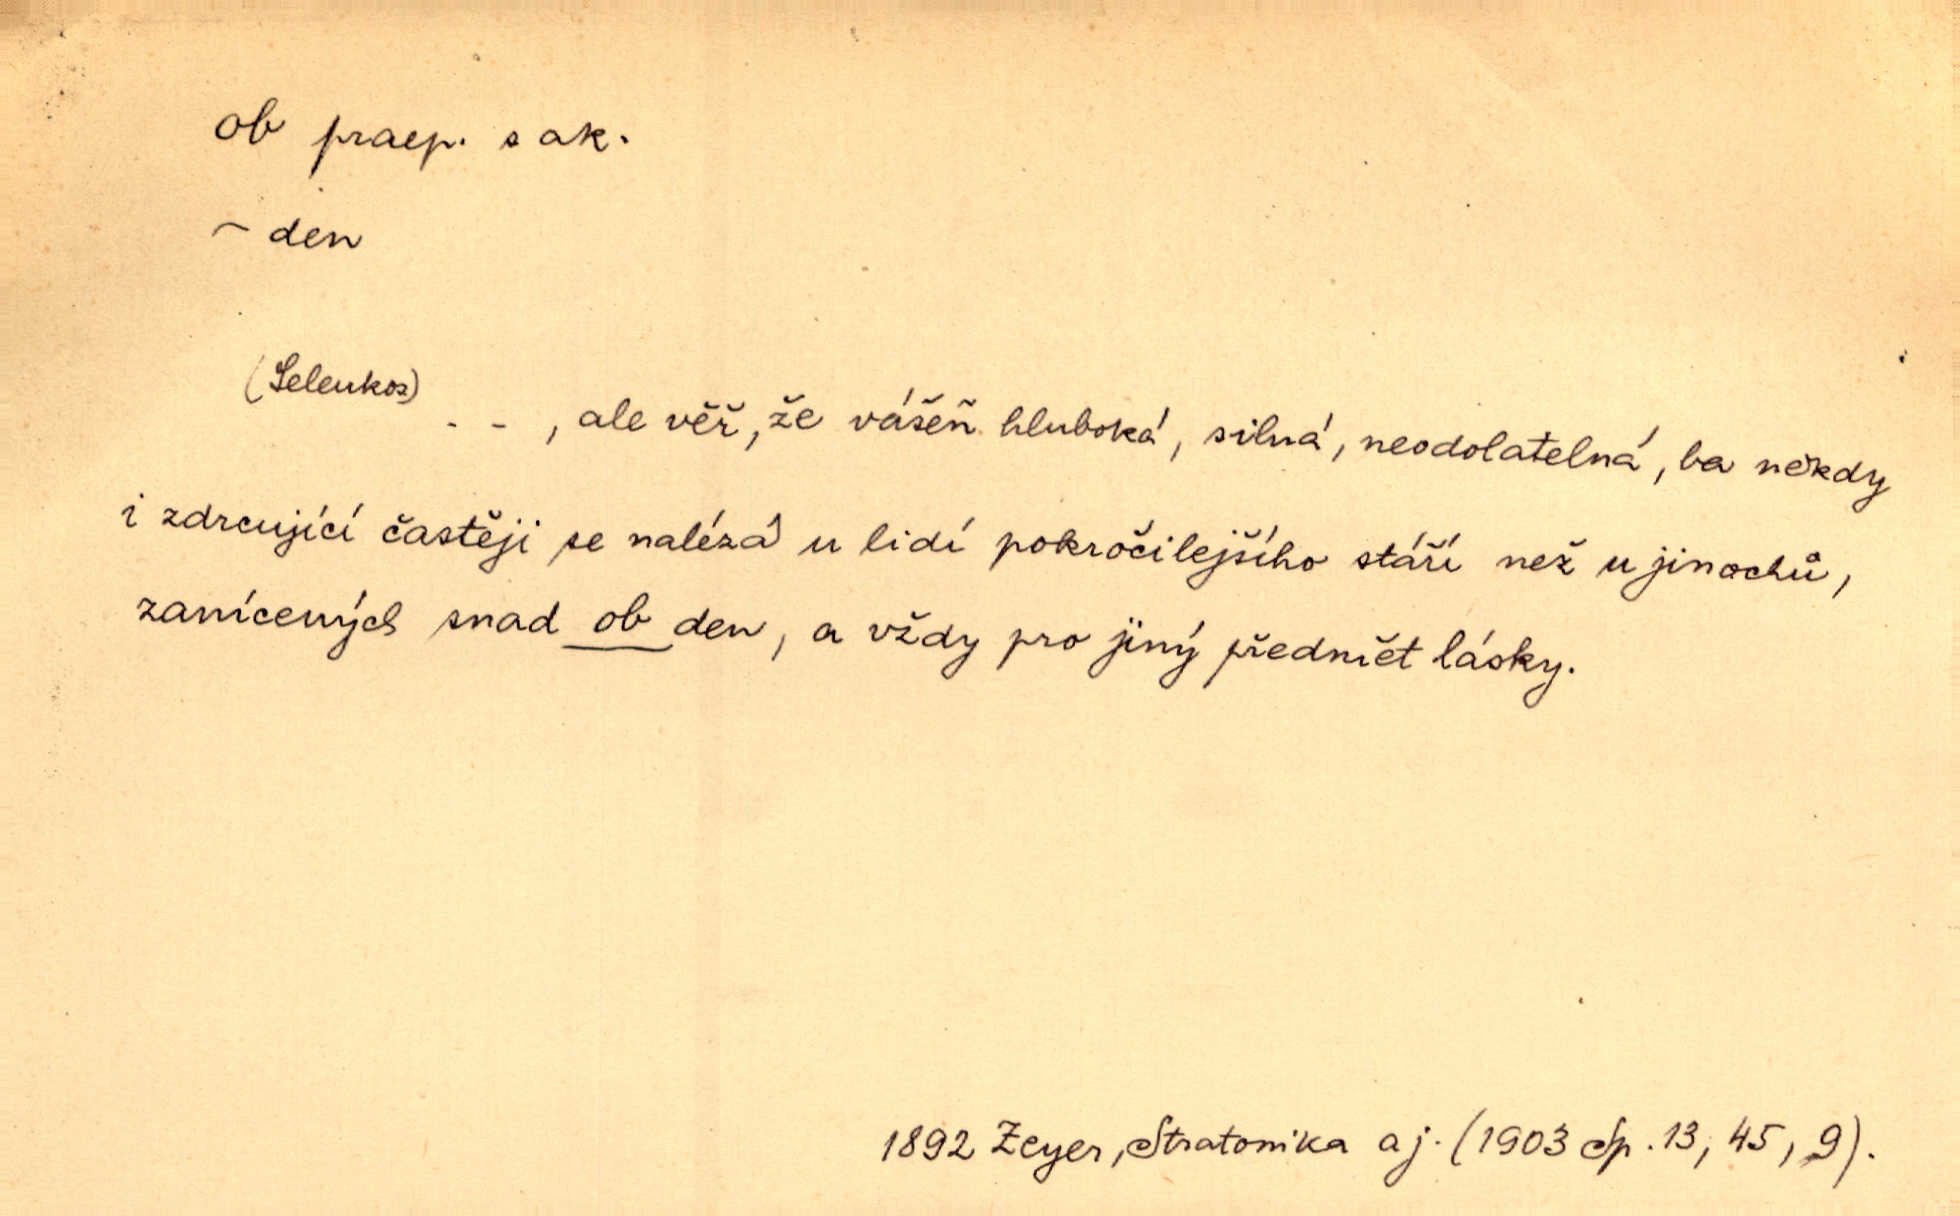 ob praep. s ak.
~ den
(Seleukos)
- - , ale věř, že vášeň hluboká, silná, neodolatelná, ba někdy
i zdrcující častěji se nalézá u lidí pokročilejšího stáří než u jinochů,
zanícených snad ob den, a vždy pro jiný předmět lásky.
1892 Zeyer, Stratonika a j. (1903 Sp. 13, 45, 9).